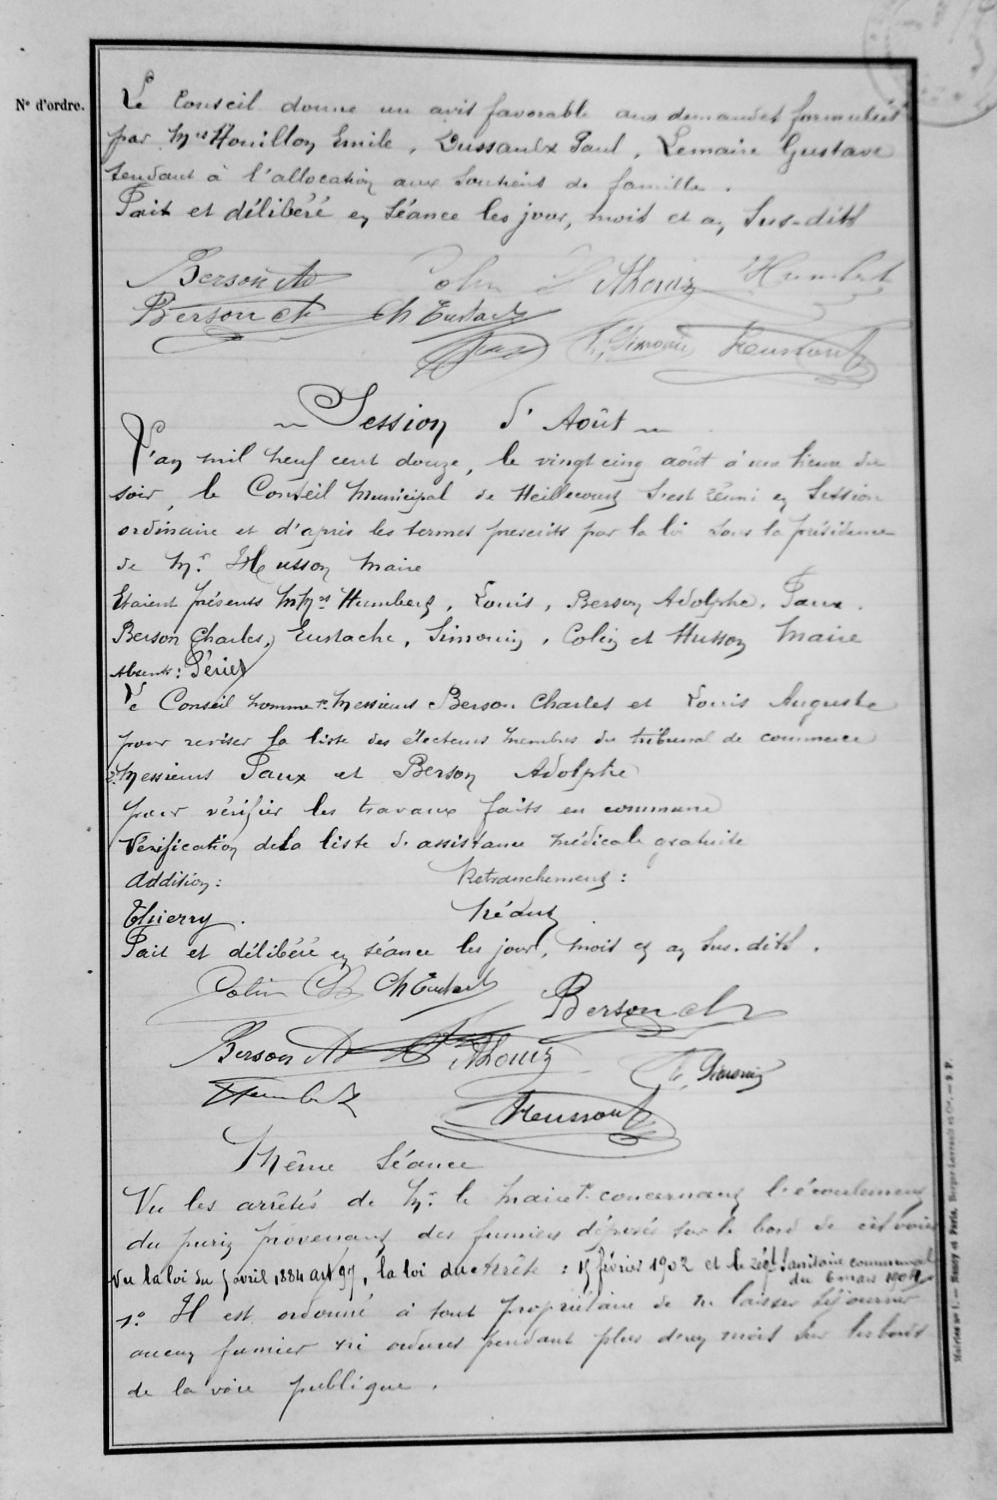 N° d'ordre.
Le Conseil donne un avis favorable aux demandes formulées
par Mrs Houillon Emile, Dussaulx Paul, Lemaire Gustave
tendant à l'allocation aux soutiens de famille.
Fait et délibéré en séance les jour, mois et an sus-dits
Berson Ad Colin A Louis Humbert
Berson Ch Ch Eustache
Paux Simonin Husson
Session d'Août
L'an mil neuf cent douze, le vingt cinq août à une heure du
soir, le Conseil Municipal de Heillecourt s'est réuni en session
ordinaire et d'après les termes prescrits par la loi sous la présidence
de Mr Husson Maire
Etaient présents MMrs Humbert, Louis, Berson Adolphe, Paux,
Berson Charles, Eustache, Simonin, Colin et Husson Maire
Absents: Périer
Le Conseil nomme 1° Messieurs Berson Charles et Louis Auguste
pour reviser la liste des électeurs membres du tribunal de commerce
2° Messieurs Paux et Berson Adolphe
pour vérifier les travaux faits en commune
Vérification de la liste d'assistance médicale gratuite
Addition: Retranchement:
Thierry. Médut
Fait et délibéré en séance les jour, mois et an sus-dits.
Colin Ch Eustache Berson Ch
Berson Ad A Louis Simonin
Humbert Husson
Même Séance
Vu les arrêtés de Mr le Maire 1° concernant l'écoulement
du purin provenant des fumiers déposés sur le bord de cet voie
Vu la loi du 5 avril 1884 art 97, la loi du arrête : 15 février 1902 et le régt sanitaire communal
du 6 mars 1904
1° Il est ordonné à tout propriétaire de ne laisser séjourner
aucun fumier ni ordures pendant plus deux mois sur les bords
de la voie publique.
Mairies n° 1. — Nancy et Paris, Berger-Levrault et Cie. — S. P.